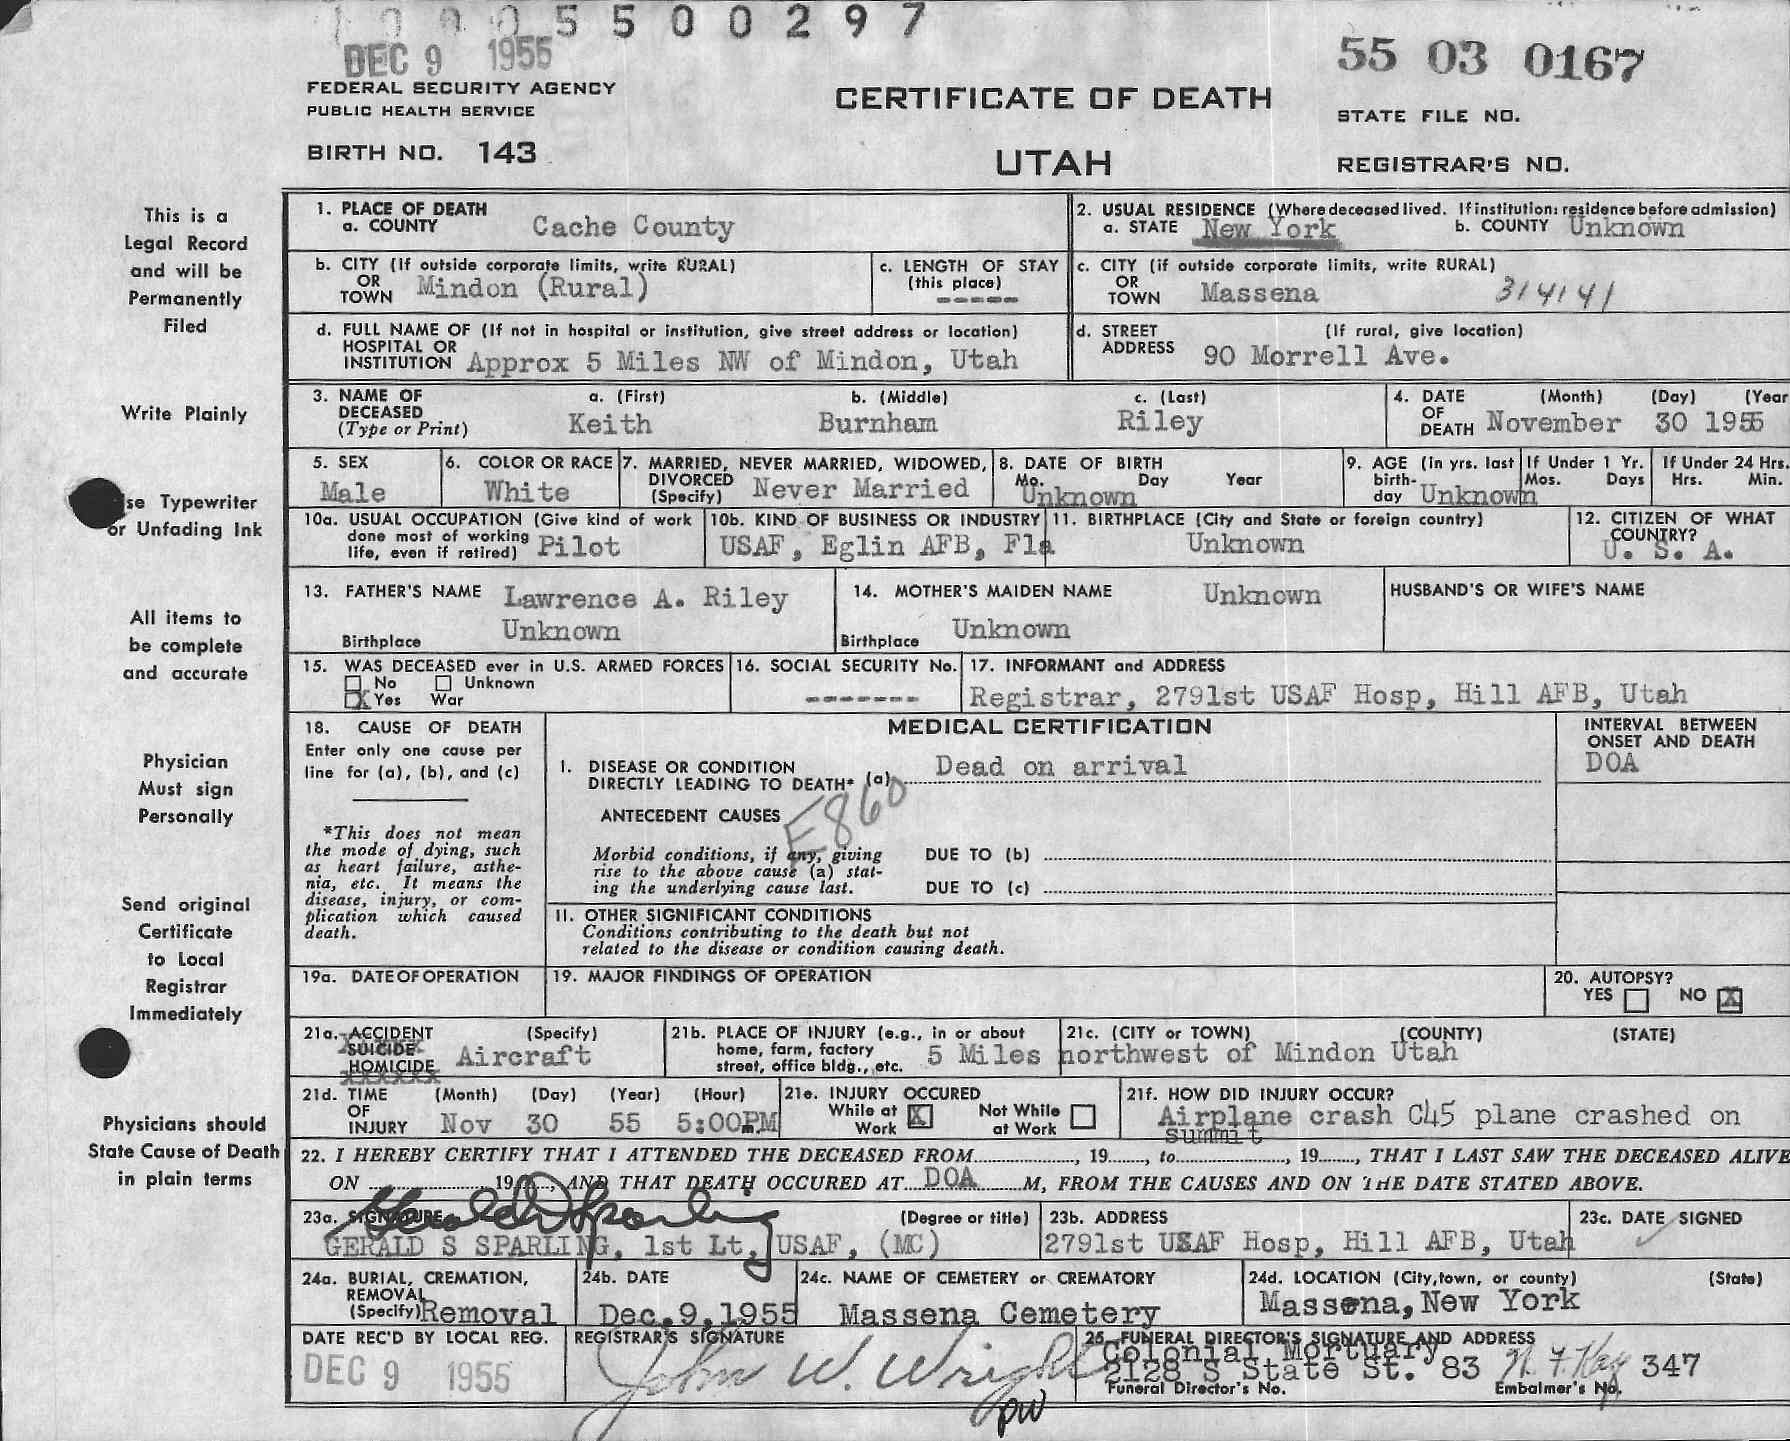 1 0 0 0 5 5 0 0 2 9 7
DEC 9 1955
55 03 0167
FEDERAL SECURITY AGENCY
PUBLIC HEALTH SERVICE
CERTIFICATE OF DEATH
STATE FILE NO.
BIRTH NO. 143
UTAH
REGISTRAR'S NO.
This is a
Legal Record
and will be
Permanently
Filed
Write Plainly
se Typewriter
or Unfading Ink
All items to
be complete
and accurate
Physician
Must sign
Personally
Send original
Certificate
to Local
Registrar
Immediately
Physicians should
State Cause of Death
in plain terms
1. PLACE OF DEATH
a. COUNTY Cache County
2. USUAL RESIDENCE (Where deceased lived. If institution: residence before admission)
a. STATE New York b. COUNTY Unknown
b. CITY (If outside corporate limits, write RURAL)
OR
TOWN Mindon (Rural)
c. LENGTH OF STAY
(this place)
-----
c. CITY (if outside corporate limits, write RURAL)
OR
TOWN Massena 314141
d. FULL NAME OF (If not in hospital or institution, give street address or location)
HOSPITAL OR
INSTITUTION Approx 5 Miles NW of Mindon, Utah
d. STREET (If rural, give location)
ADDRESS 90 Morrell Ave.
3. NAME OF
DECEASED
(Type or Print)
a. (First) b. (Middle) c. (Last)
Keith Burnham Riley
4. DATE (Month) (Day) (Year
OF
DEATH November 30 1955
5. SEX
Male
6. COLOR OR RACE
White
7. MARRIED, NEVER MARRIED, WIDOWED,
DIVORCED
(Specify) Never Married
8. DATE OF BIRTH
Mo. Day Year
Unknown
9. AGE (In yrs. last
birth-
day Unknown
If Under 1 Yr.
Mos. Days
If Under 24 Hrs.
Hrs. Min.
10a. USUAL OCCUPATION (Give kind of work
done most of working
life, even if retired) Pilot
10b. KIND OF BUSINESS OR INDUSTRY
USAF, Eglin AFB, Fla
11. BIRTHPLACE (City and State or foreign country)
Unknown
12. CITIZEN OF WHAT
COUNTRY?
U. S. A.
13. FATHER'S NAME Lawrence A. Riley
Birthplace Unknown
14. MOTHER'S MAIDEN NAME Unknown
Birthplace Unknown
HUSBAND'S OR WIFE'S NAME
15. WAS DECEASED ever in U.S. ARMED FORCES
No Unknown
X Yes War
16. SOCIAL SECURITY No.
-------
17. INFORMANT and ADDRESS
Registrar, 2791st USAF Hosp, Hill AFB, Utah
18. CAUSE OF DEATH
Enter only one cause per
line for (a), (b), and (c)
*This does not mean
the mode of dying, such
as heart failure, asthe-
nia, etc. It means the
disease, injury, or com-
plication which caused
death.
MEDICAL CERTIFICATION
I. DISEASE OR CONDITION
DIRECTLY LEADING TO DEATH* (a) Dead on arrival
ANTECEDENT CAUSES
E860
Morbid conditions, if any, giving
rise to the above cause (a) stat-
ing the underlying cause last.
DUE TO (b)
DUE TO (c)
II. OTHER SIGNIFICANT CONDITIONS
Conditions contributing to the death but not
related to the disease or condition causing death.
INTERVAL BETWEEN
ONSET AND DEATH
DOA
19a. DATE OF OPERATION
19. MAJOR FINDINGS OF OPERATION
20. AUTOPSY?
YES NO X
21a. ACCIDENT (Specify)
SUICIDE
HOMICIDE Aircraft
21b. PLACE OF INJURY (e.g., in or about
home, farm, factory
street, office bldg., etc.
21c. (CITY or TOWN) (COUNTY) (STATE)
5 Miles northwest of Mindon Utah
21d. TIME (Month) (Day) (Year) (Hour)
OF
INJURY Nov 30 55 5:00PM
21e. INJURY OCCURED
While at X Not While
Work at Work
21f. HOW DID INJURY OCCUR?
Airplane crash C45 plane crashed on
summit
22. I HEREBY CERTIFY THAT I ATTENDED THE DECEASED FROM, 19, to, 19, THAT I LAST SAW THE DECEASED ALIVE
ON 19, AND THAT DEATH OCCURED AT DOA M, FROM THE CAUSES AND ON THE DATE STATED ABOVE.
23a. SIGNATURE (Degree or title)
Gerald S Sparling
GERALD S SPARLING, 1st Lt, USAF, (MC)
23b. ADDRESS
2791st USAF Hosp, Hill AFB, Utah
23c. DATE SIGNED
24a. BURIAL, CREMATION,
REMOVAL
(Specify) Removal
24b. DATE
Dec. 9, 1955
24c. NAME OF CEMETERY or CREMATORY
Massena Cemetery
24d. LOCATION (City, town, or county) (State)
Massena, New York
DATE REC'D BY LOCAL REG.
DEC 9 1955
REGISTRAR'S SIGNATURE
John W. Wright
pw
25. FUNERAL DIRECTOR'S SIGNATURE AND ADDRESS
Colonial Mortuary
2128 S State St. 83 347
Funeral Director's No. Embalmer's No.